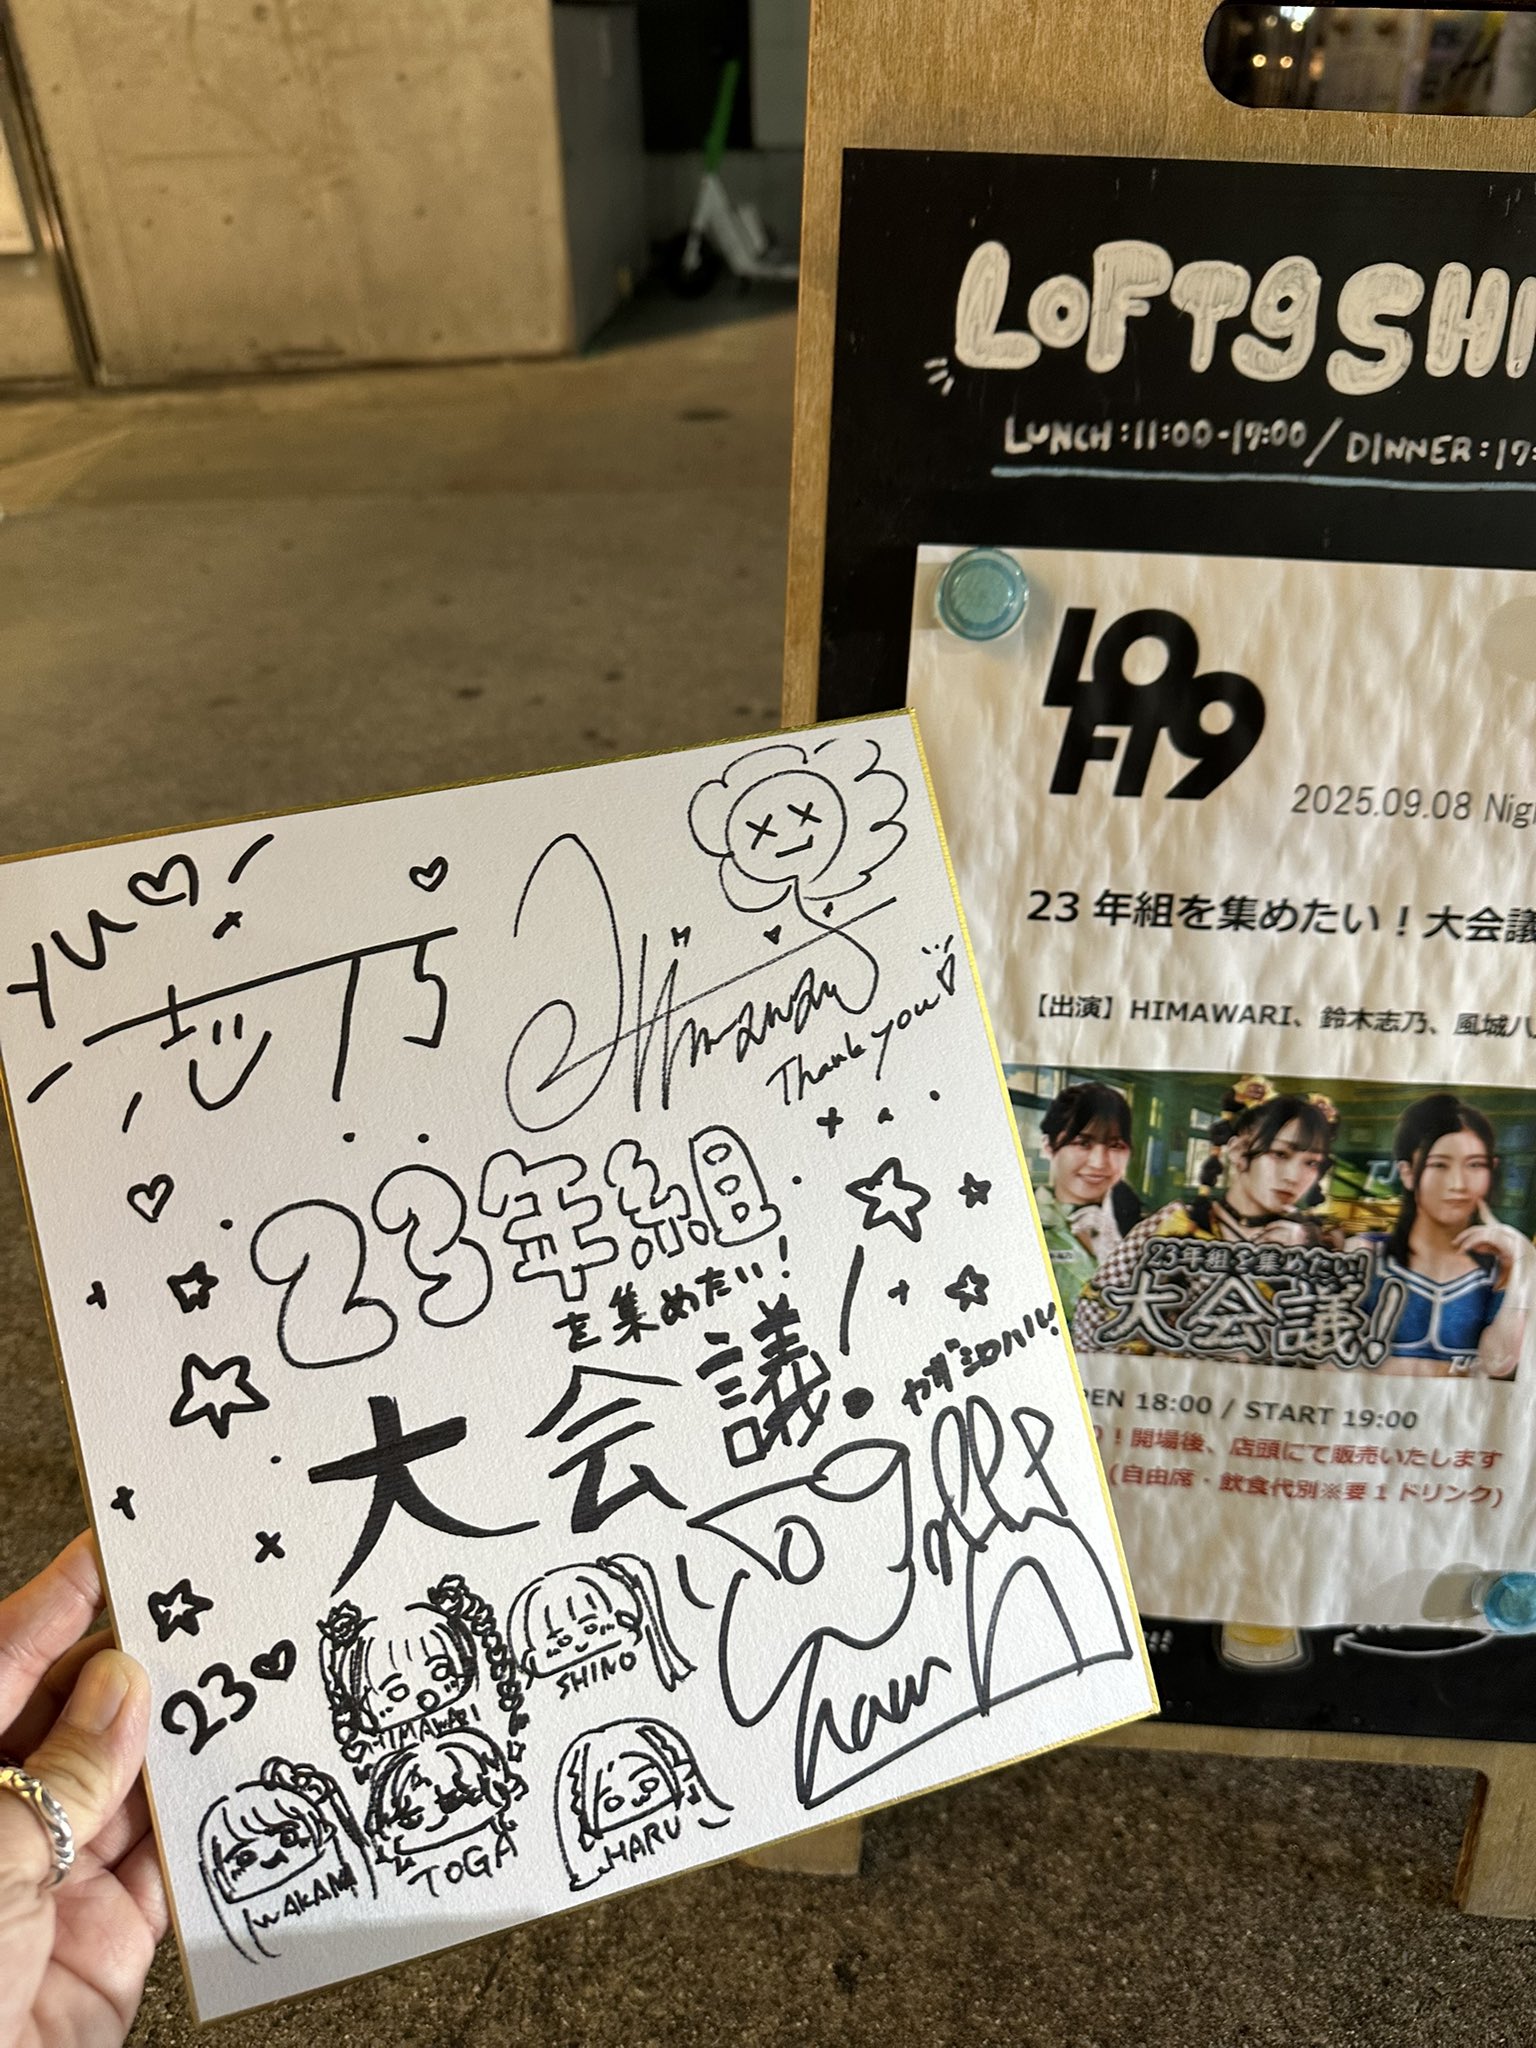 LOFT9 SHI
LUNCH:11:00-17:00/DINNER:17:
LOFT9
2025.09.08 Nig
23 年組を集めたい！大会議
【出演】HIMAWARI、鈴木志乃、風城ハ
23年組を集めたい!
大会議!
PEN 18:00 / START 19:00
！開場後、店頭にて販売いたします
(自由席・飲食代別※要 1 ドリンク)
志乃
Himawari
Thank you
23年組
を集めたい!
大会議!
カザシロハル!
23
HIMAWARI
SHINO
WAKANA
TOGA
HARU